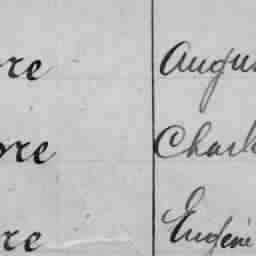 ore Augus
ore Charl
ore Eugène